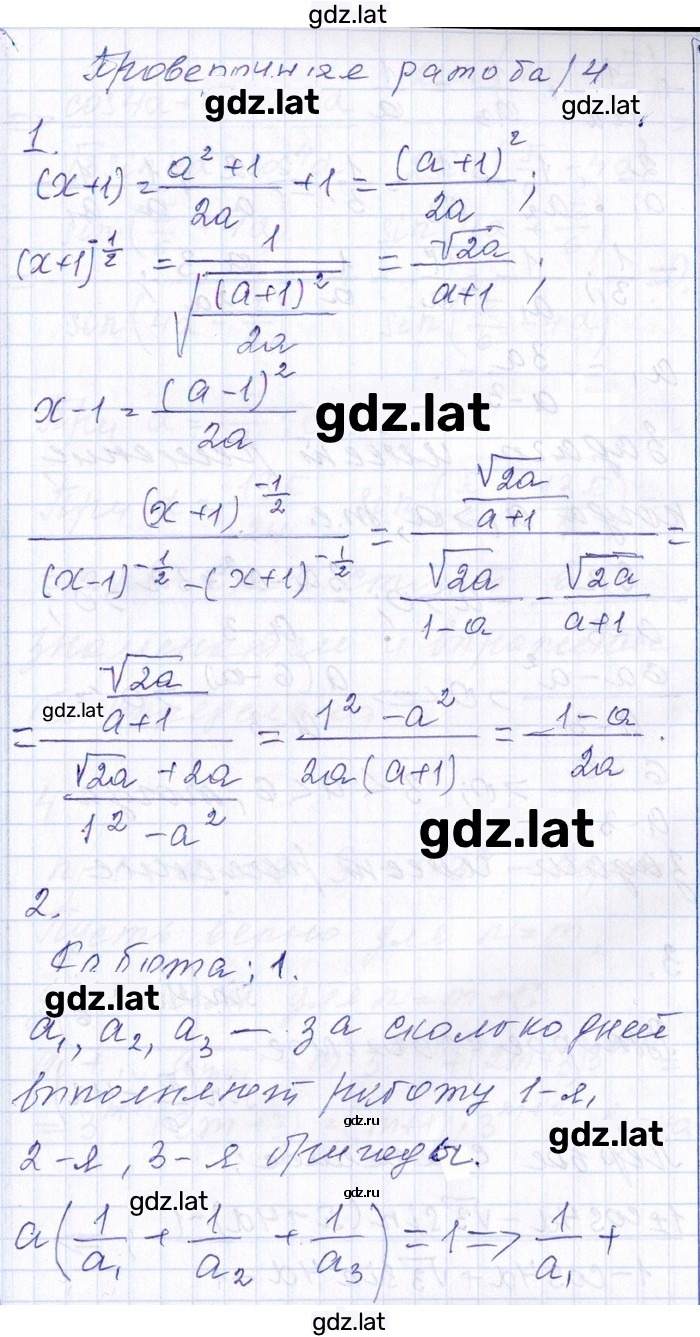 gdz.lat
Проверочная работа /4
gdz.lat
1.
(x+1) = \frac{a^2+1}{2a} + 1 = \frac{(a+1)^2}{2a};
(x+1)^{-\frac{1}{2}} = \frac{1}{\sqrt{\frac{(a+1)^2}{2a}}} = \frac{\sqrt{2a}}{a+1};
x-1 = \frac{(a-1)^2}{2a}
gdz.lat
\frac{(x+1)^{-\frac{1}{2}}}{(x-1)^{-\frac{1}{2}} - (x+1)^{-\frac{1}{2}}} = \frac{\frac{\sqrt{2a}}{a+1}}{\frac{\sqrt{2a}}{1-a} - \frac{\sqrt{2a}}{a+1}} =
gdz.lat
= \frac{\frac{\sqrt{2a}}{a+1}}{\frac{\sqrt{2a}+2a}{1^2-a^2}} = \frac{1^2-a^2}{2a(a+1)} = \frac{1-a}{2a}.
gdz.lat
2.
Работа: 1.
gdz.lat
a_1, a_2, a_3 — за сколько дней
выполняют работу 1-я,
gdz.ru
gdz.lat
2-я, 3-я бригады.
gdz.lat
gdz.ru
a(\frac{1}{a_1} + \frac{1}{a_2} + \frac{1}{a_3}) = 1 => \frac{1}{a_1} +
gdz.lat